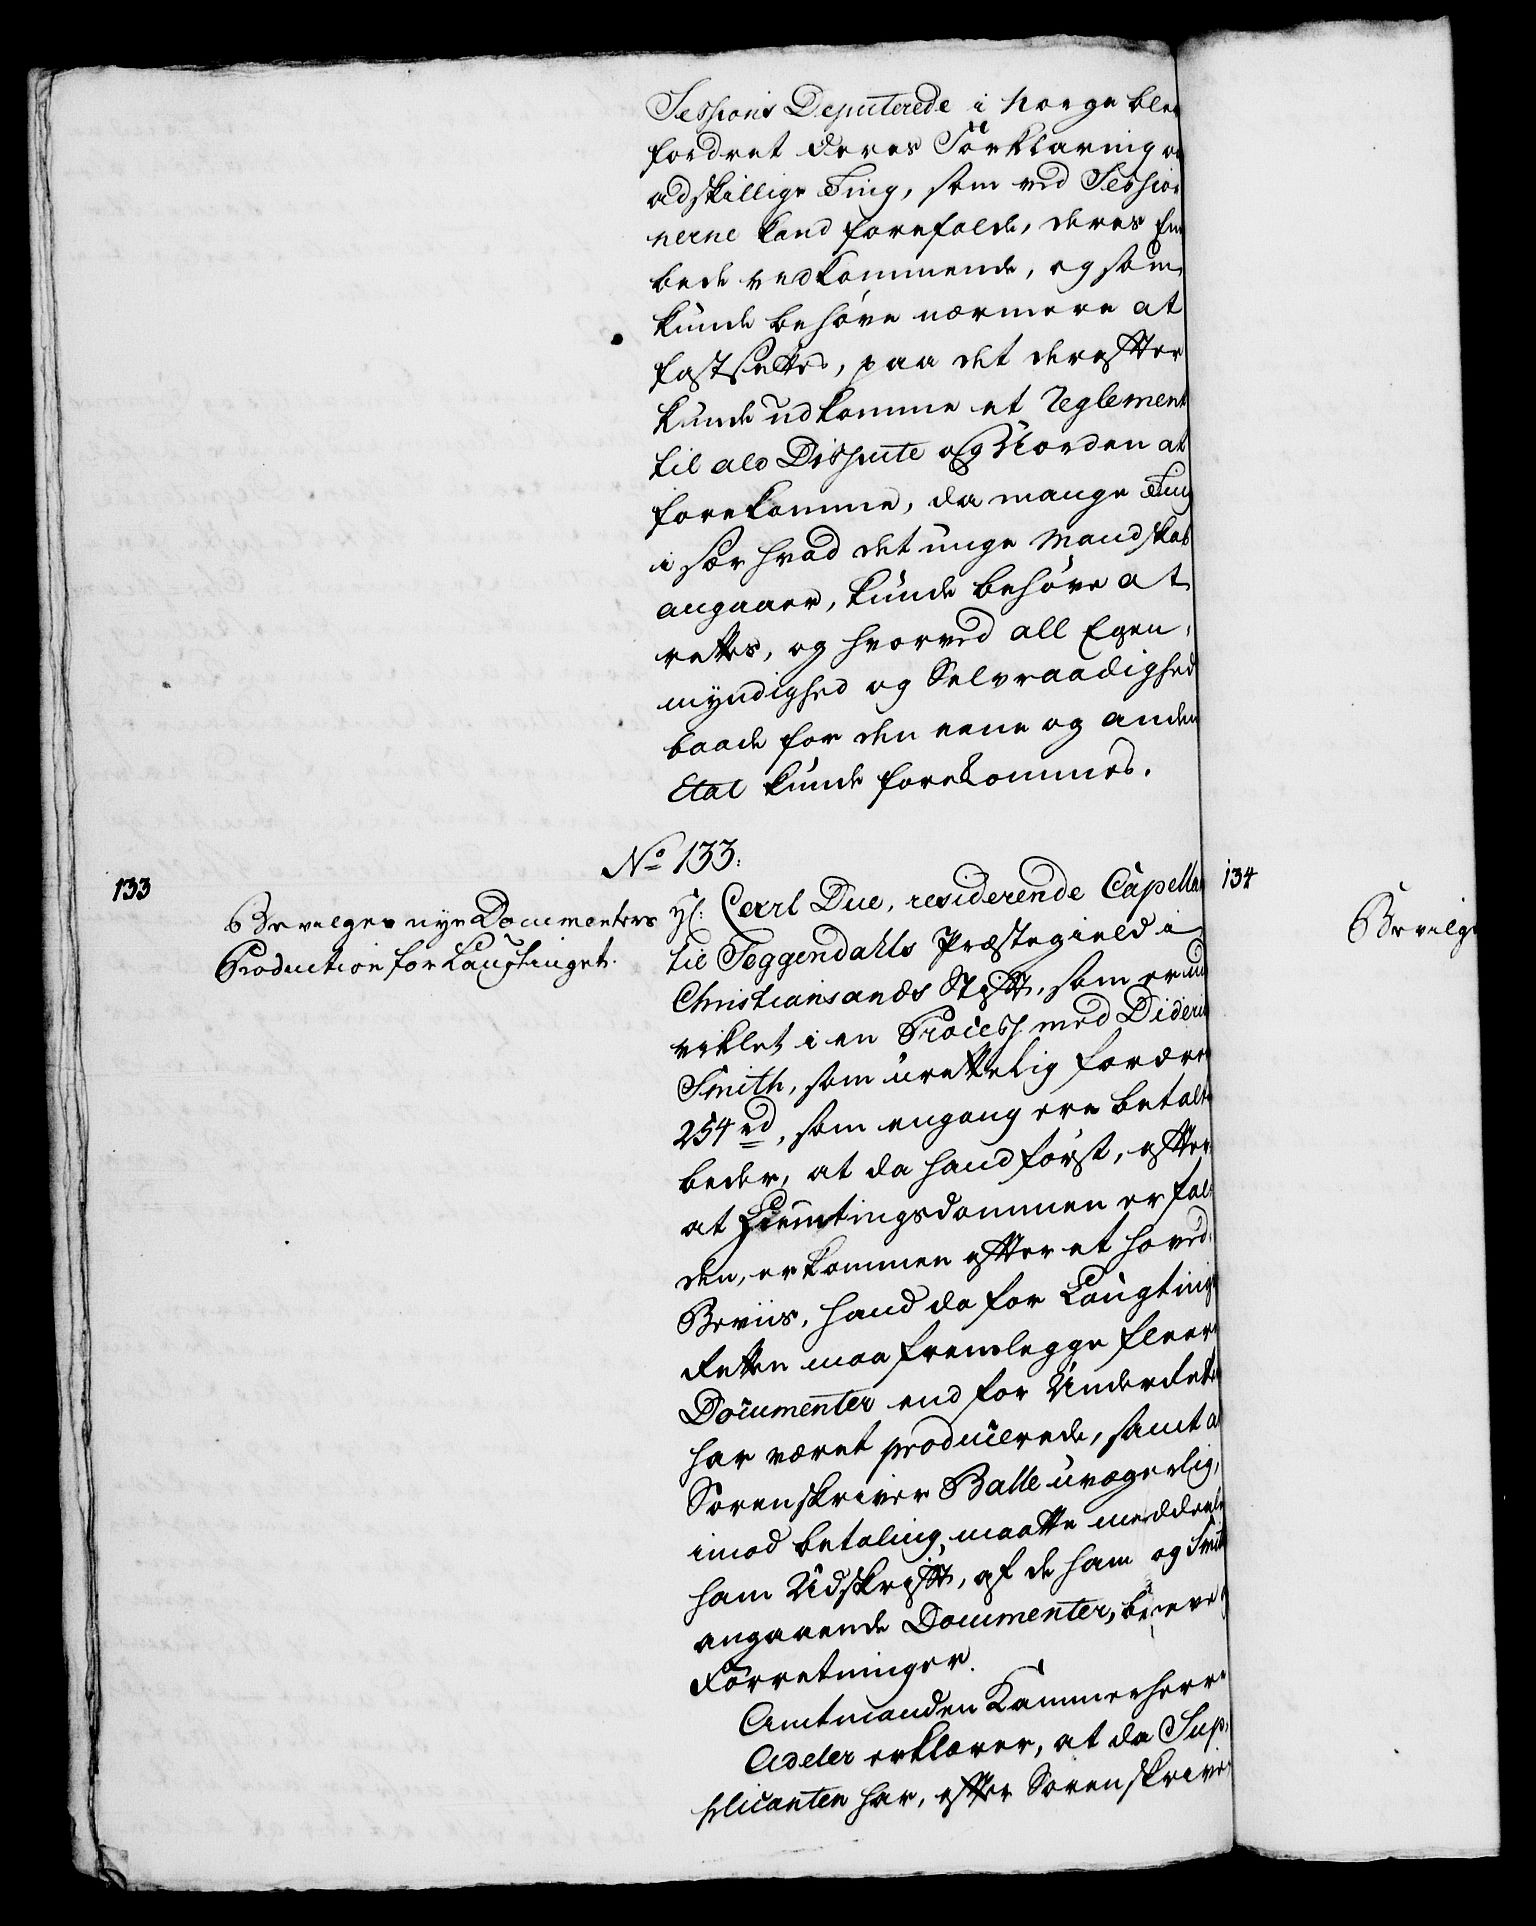 Sessions Deputerede i Norge blev
fordret deres Forklaring om
adskillige Ting, som ved Session
nerne kand forefalde, deres Em
bede vedkommende, og som
kunde behøve nærmere at
fastsettes, paa det derefter
kunde udkomme et Reglement
til ald Dispute og Uorden at
forekomme, da mange Ting
i sær hvad det unge Mandskab
angaaer, kunde behøve at
rettes, og hvorved all Egen-
myndighed og Selvraadighed
baade for den eene og anden
Etat kunde forekommes.
No 133:
133
Bevilges nye Documenters
Production for Laugtinget.
Hr: Carl Due, residerende Capellan
til Feggendahls Præstegield i
Christiansands Stift, som er ind
viklet i en Process med Diderich
Smith, som urettelig fordrer
254 rd, som engang ere betalte
beder, at da hand først, efter
at Hiemtingsdommen er fal-
den, er kommen efter et hoved-
Beviis, hand da for Laugtings
Retten maa fremlegge fleere
Documenter end for Underretten
har været producerede, samt at
Sorenskriver Balle uvægerlig,
imod betaling, maatte meddeele
ham Udskrift, af de ham og Smith
angaaende Documenter, breve
Forretninger.
Amtmanden Kammerherre
Adeler erklærer, at da Sup-
plicanten har, efter Sorenskriver
134
Bevilge